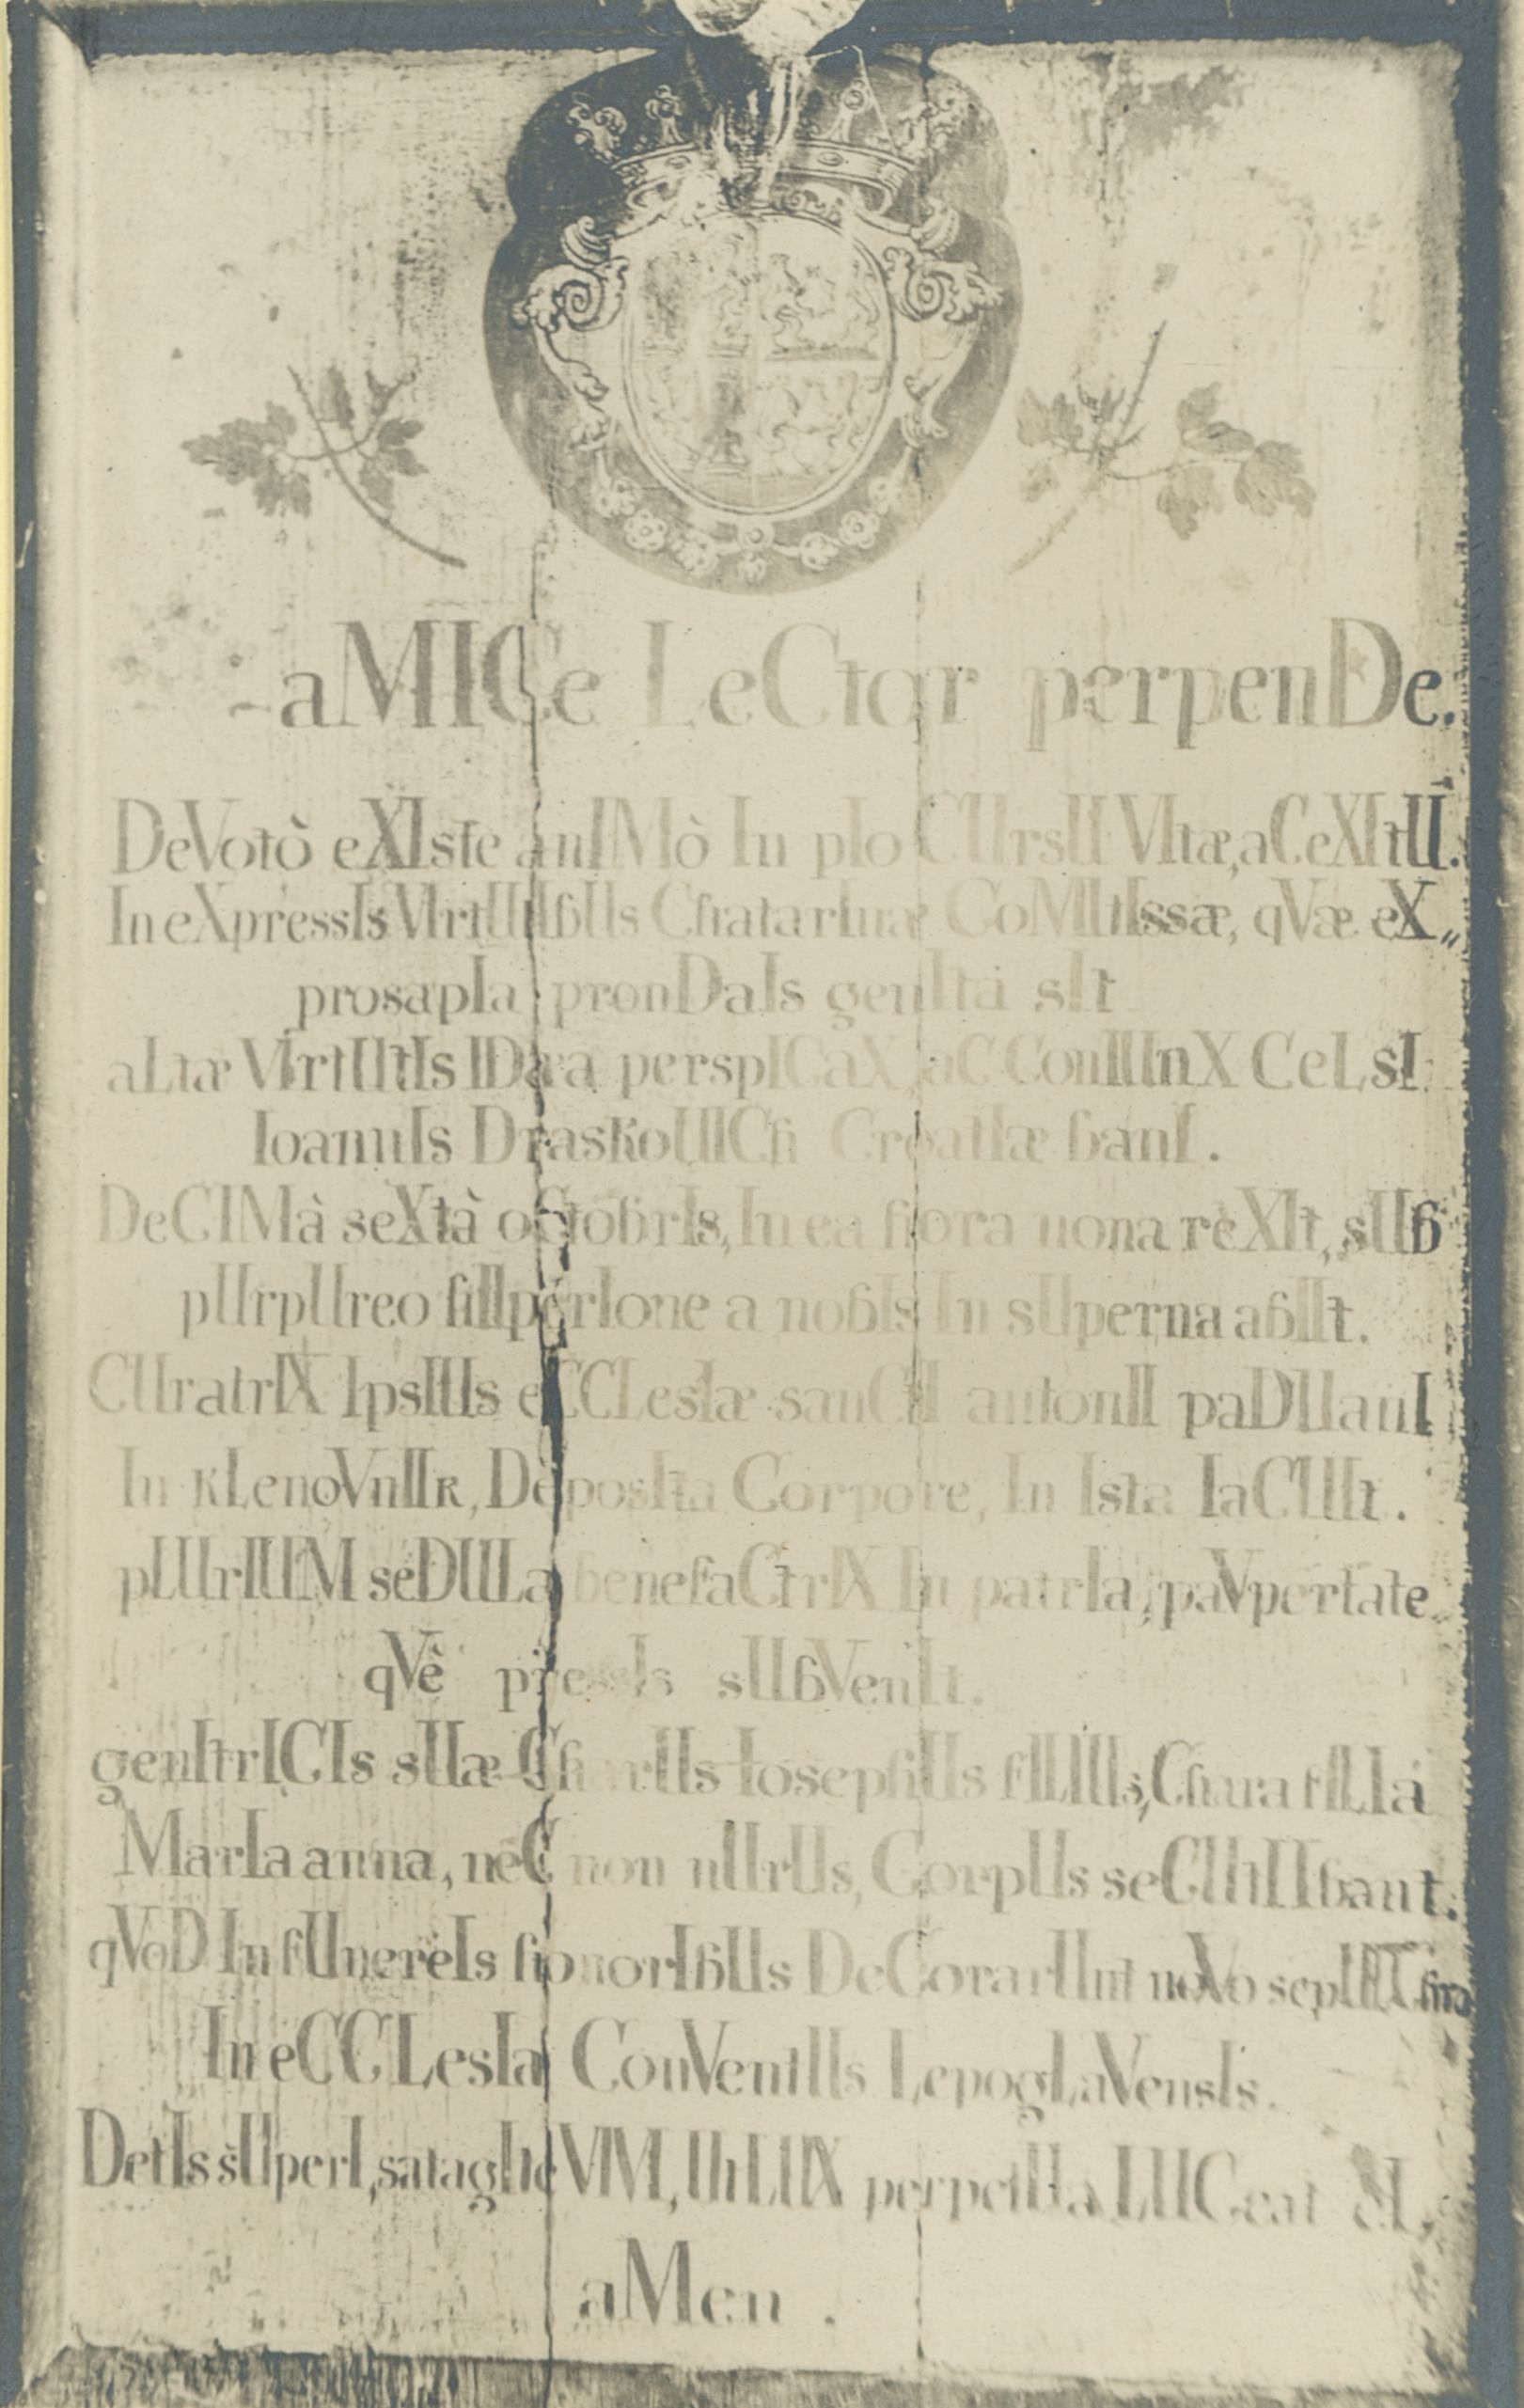 aMICe LeCtor perpenDe.
DeVotò eXIste anIMò In pIo CUrsU VItæ, aC eXItU.
In eXpressIs VIrtUtIbUs ChatarInæ CoMItIssæ, qVæ eX„
prosapIa pronDaIs genIta sIt
aLtæ VIrtUtIs IDæa perspICaX, aC ConIUnX CeLsI
IoannIs DrasKoUICh CroatIæ banI.
DeCIMà seXtà oCtobrIs, In ea hora nona reXIt, sUb
pUrpUreo hUperIone a nobIs In sUperna abIIt.
CUratrIX IpsIUs eCCLesIæ sanCtI antonII paDUanI
In KLenoVnIIK, DeposIta Corpore, In Ista IaCUIt.
pLUrIUM seDULa benefaCtrIX In patrIa, paVpertate
qVè pressIs sUbVenIt.
genItrICIs sUæ CharUs IosephUs fILIUs, Chara fILIa
MarIa anna, neC non nUrUs, CorpUs seCUtI Ibant.
qVoD In fUnereIs honorIbUs DeCorarUnt noVo
In eCCLesIa ConVentUs LepogLaVensIs.
DetIs sUperI, satagIte VIVI, Ut LUX perpetUa LUCeat eI,
aMen.